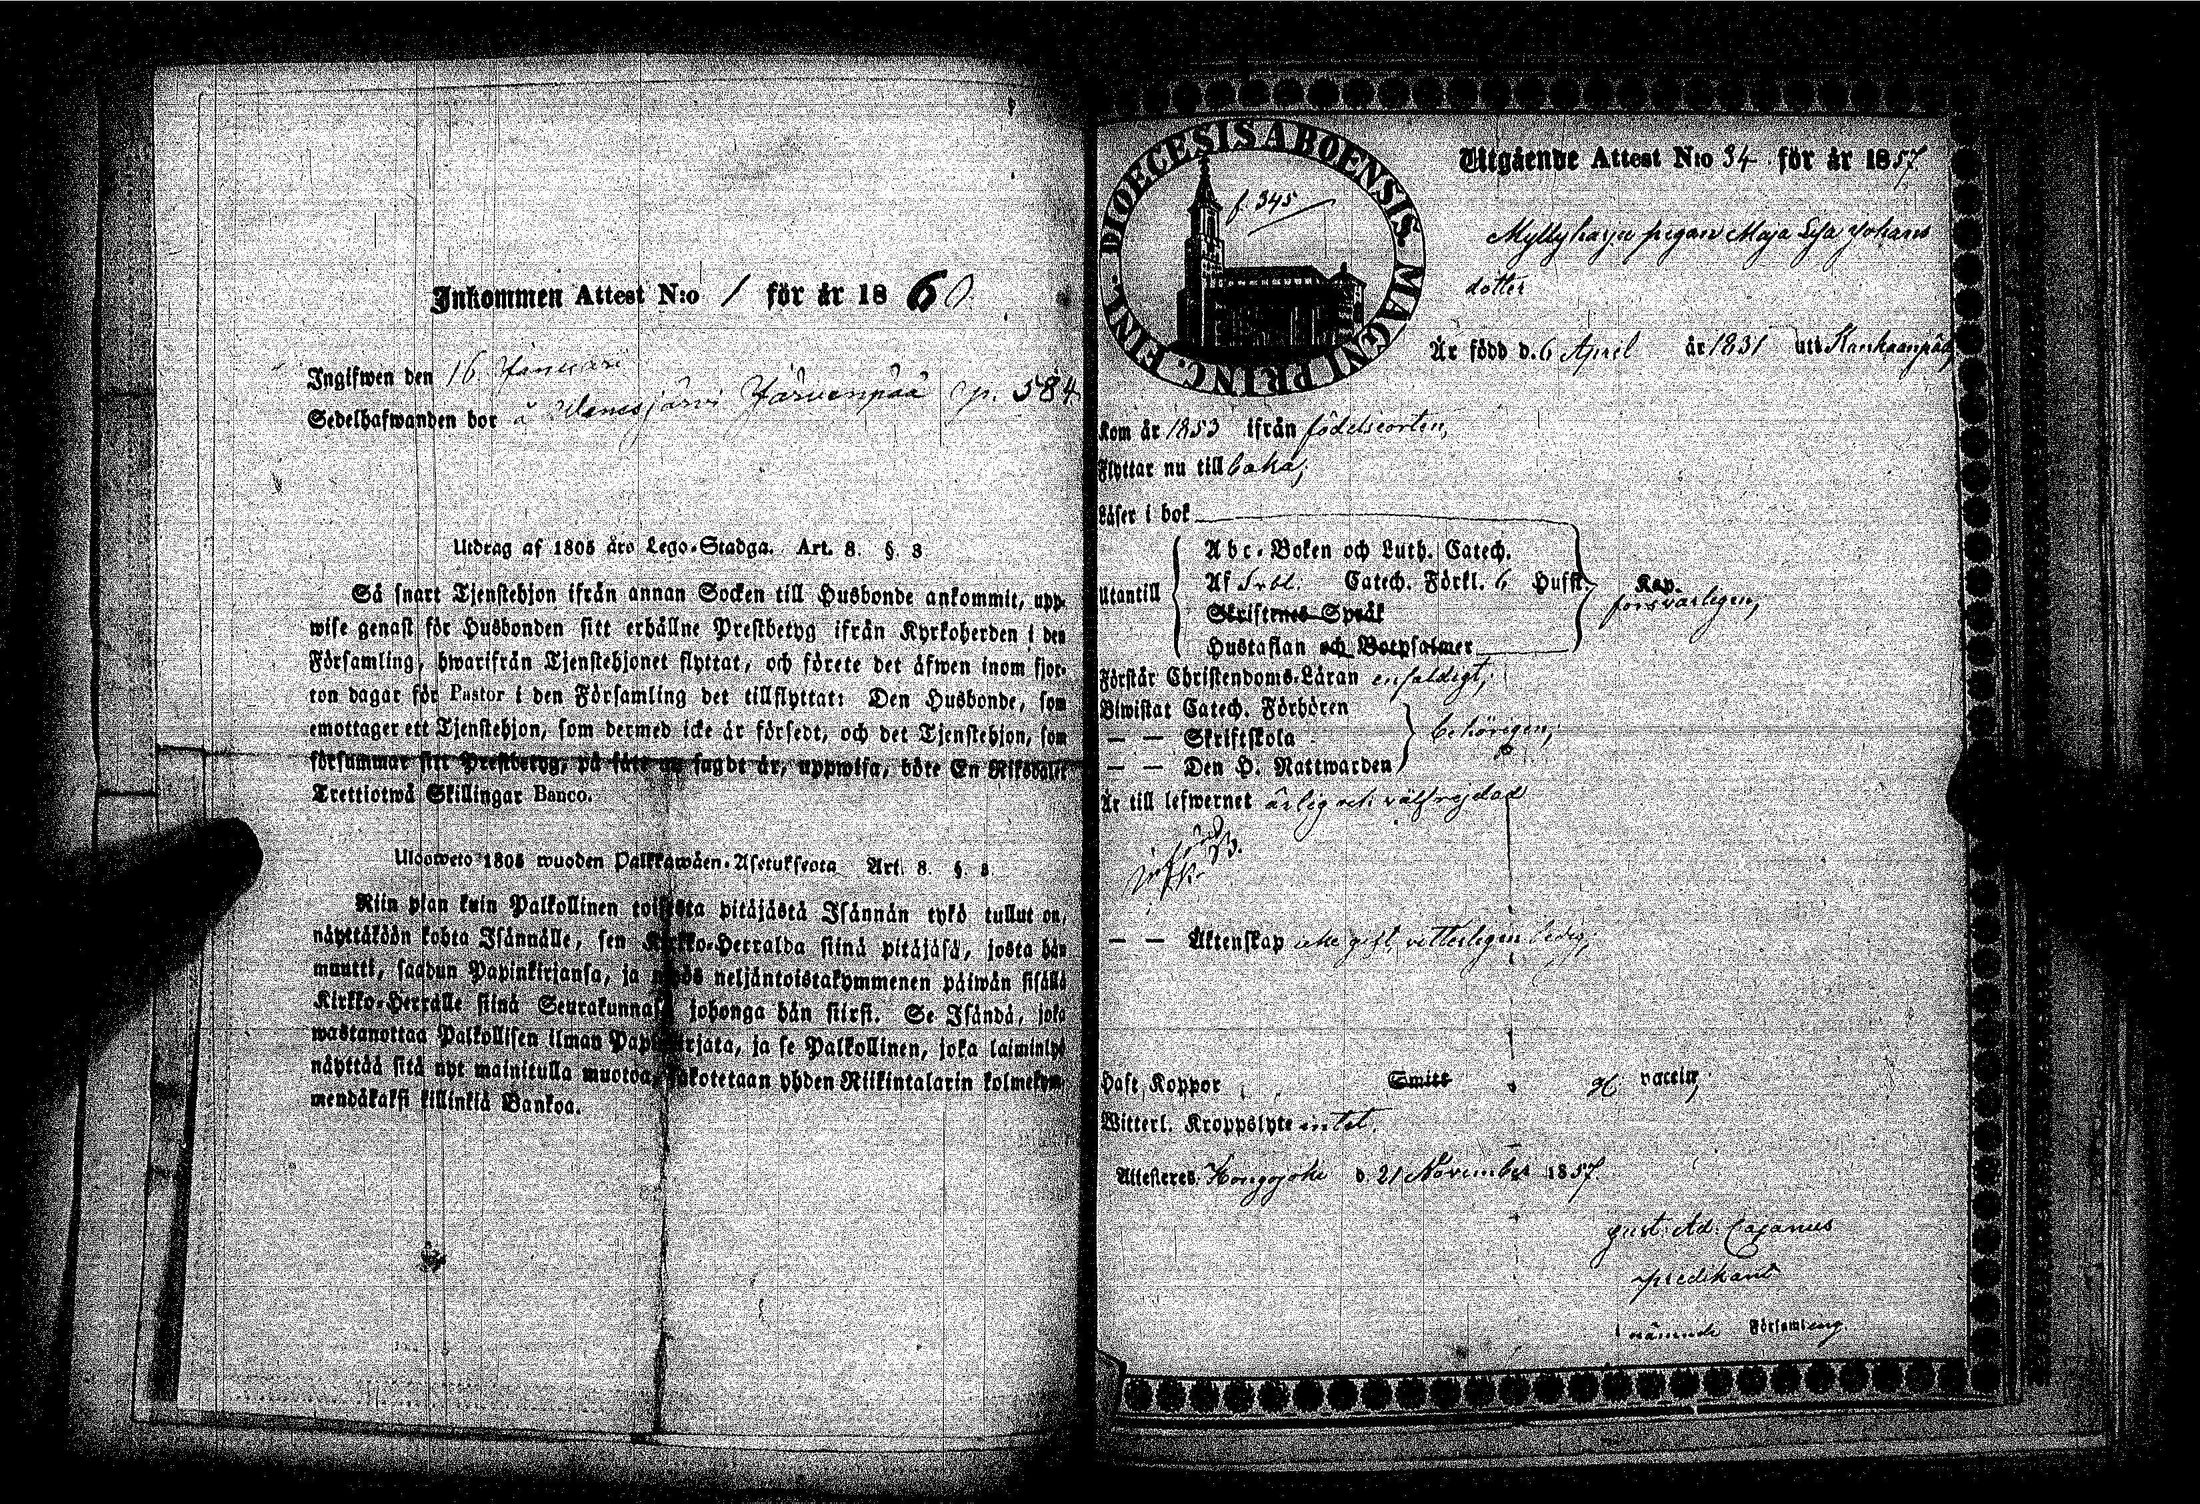 Inkommen Attest N:o 1 för år 1860
Ingifwen den 16 Januari
Sedelhafwanden bor å Venesjärvi Järvenpää p. 584
Utdrag af 1805 års Lego-Stadga. Art. 8. §. 3
Så snart Tjenstehjon ifrån annan Socken till Husbonde ankommit, upp-
wise genast för Husbonden sitt erhållne Prestbetyg ifrån Kyrkoherden i den
Församling, hwarifrån Tjenstehjonet flyttat, och förete det äfwen inom fjor-
ton dagar för Pastor i den Församling det tillflyttat: Den Husbonde, som
emottager ett Tjenstehjon, som dermed icke är försedt, och det Tjenstehjon, som
försummar sitt Prestbetyg, på sätt nu sagdt är, uppwisa, böte En Riksdaler
Trettiotwå Skillingar Banco.
Ulosweto 1805 wuoden Palkkawäen-Asetuksesta Art. 8. §. 3
Niin pian kuin Palkollinen toisesta pitäjästä Isännän tykö tullut on,
näyttäköön kohta Isännälle, sen Kirkko-Herralda siinä pitäjäsä, josta hän
muutti, saadun Papinkirjansa, ja myös neljäntoistakymmenen päiwän sisällä
Kirkko-Herralle siinä Seurakunnasa johonga hän siirsi. Se Isändä, joka
wastanottaa Palkollisen ilman Papinkirjata, ja se Palkollinen, joka laiminlyö
näyttää sitä nyt mainitulla muotoa, sakotetaan yhden Riikintalarin kolmekym-
mendäkaksi killinkiä Bankoa.
DIOECESIS ABOENSIS. MAGNI PRINC. FINL.
f. 345
Utgående Attest N:o 34 för år 1857.
Myllyharju pigan Maja Lisa Johans
dotter
Är född d. 6 April år 1831 uti Kankaanpää,
Kom år 1853 ifrån födelseorten,
Flyttar nu till baka,
Läser i bok
Utantill
Abc-Boken och Luth. Catech.
Af Svbl. Catech. Förkl. 6 Hufst.
Skriftenes Språk
Hustaflan och Botpsalmer
Kap.
försvarligen,
Förstår Christendoms-Läran enfaldigt,
Biwistat Catech. Förhören
— — Skriftskola
— — Den H. Nattwarden
behörigen,
Är till lefwernet ärlig och välfrejdad
— — Äktenskap icke gift, vitterligen ledig,
Haft Koppor Smitt vaccin,
Witterl. Kroppslyte intet.
Attesteres Hongojoki d. 21 November 1857.
Gust. Ad. Cajanus
predikant
i nämnde Församling.